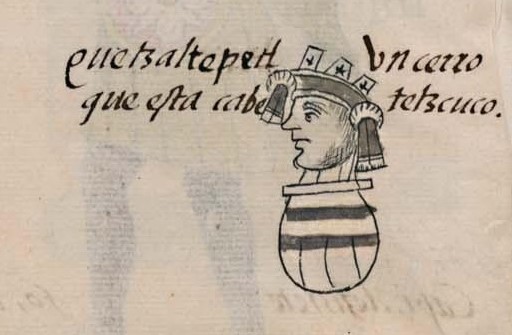 quetzaltepetl Vn cerro
que esta cabe tetzcuco.